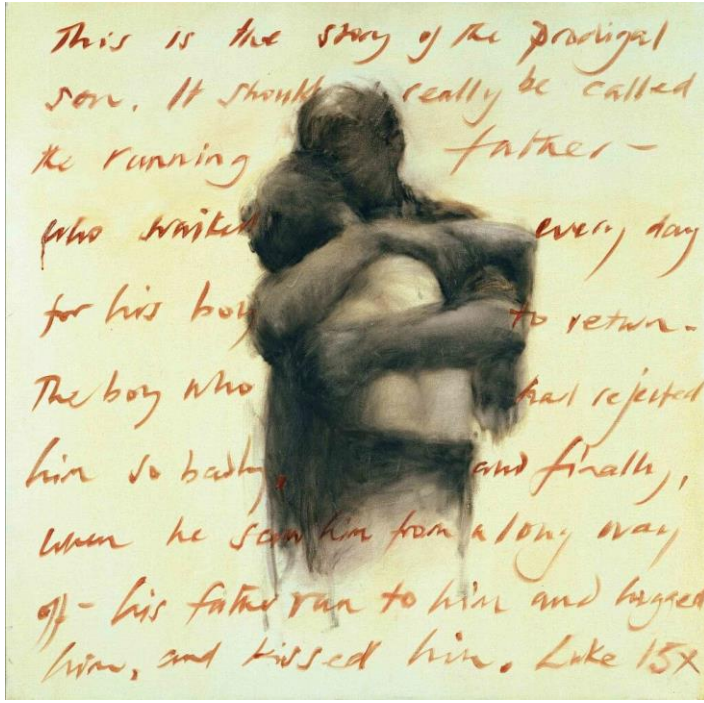 This is the story of the prodigal
son. It should really be called
the running father-
who waited every day
for his boy to return.
The boy who had rejected
him so badly, and finally,
when he saw him from a long way
off- his father ran to him and hugged
him, and kissed him. Luke 15x